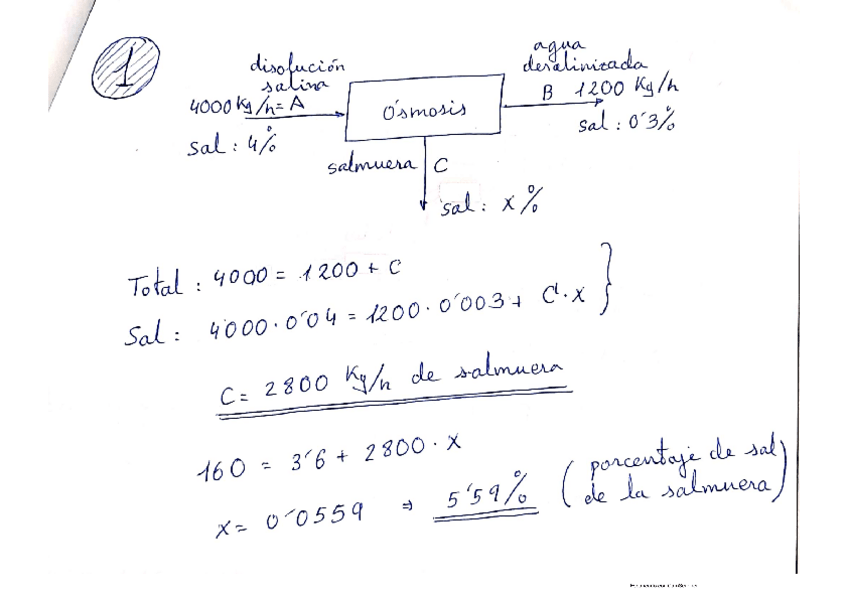 1
disolución
salina
4000 Kg/h = A
sal : 4%
Ósmosis
agua
desalinizada
B 1200 Kg/h
sal : 0'3%
salmuera C
sal : x%
Total : 4000 = 1200 + C
Sal : 4000 · 0'04 = 1200 · 0'003 + C · x }
C = 2800 Kg/h de salmuera
160 = 3'6 + 2800 · x
x = 0'0559 ⇒ 5'59% (porcentaje de sal
de la salmuera)